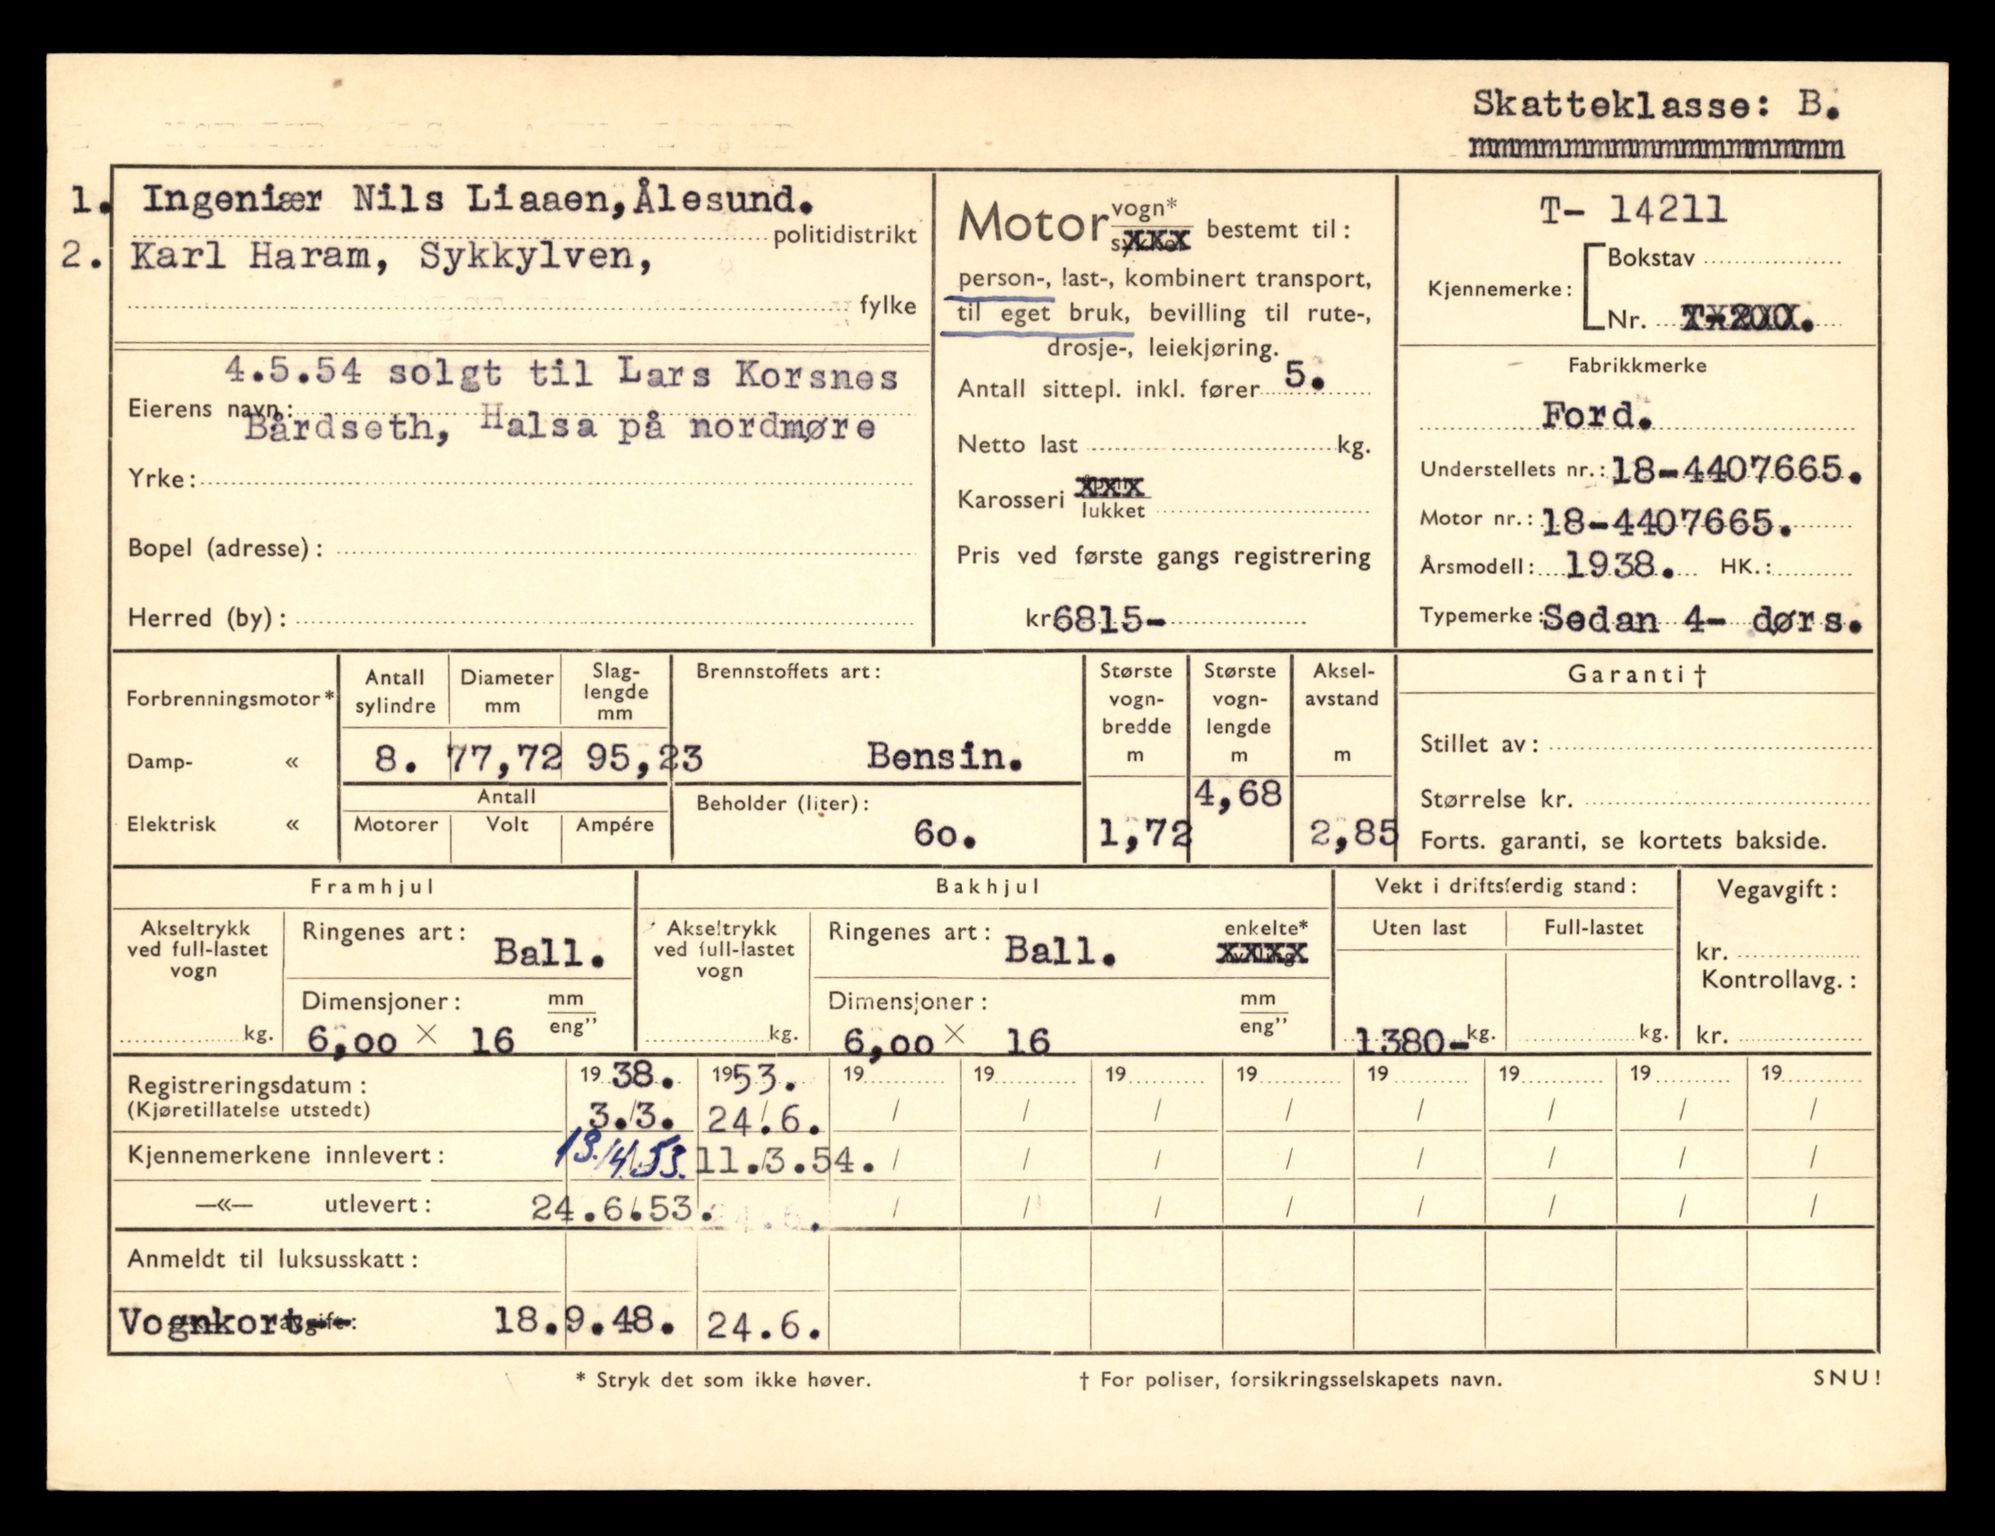 Skatteklasse: B.
1. Ingeniær Nils Liaaen, Ålesund.
politidistrikt
2. Karl Haram, Sykkylven,
fylke
4.5.54 solgt til Lars Korsnes
Eierens navn:
Bårdseth, Halsa på nordmøre
Yrke:
Bopel (adresse):
Herred (by):
Motor vogn* bestemt til:
person-, last-, kombinert transport,
til eget bruk, bevilling til rute-,
drosje-, leiekjøring.
Antall sittepl. inkl. fører 5.
Netto last kg.
Karosseri
lukket
Pris ved første gangs registrering
kr 6815-
T- 14211
Kjennemerke: Bokstav
Nr. T-200.
Fabrikkmerke
Ford.
Understellets nr.: 18-4407665.
Motor nr.: 18-4407665.
Årsmodell: 1938. HK.:
Typemerke: Sedan 4- dørs.
Forbrenningsmotor*
Damp- «
Elektrisk «
Antall sylindre
8.
Diameter mm
77,72
Slaglengde mm
95,23
Antall
Motorer Volt Ampére
Brennstoffets art:
Bensin.
Beholder (liter):
60.
Største vognbredde m
1,72
Største vognlengde m
4,68
Akselavstand m
2,85
Garanti †
Stillet av:
Størrelse kr.
Forts. garanti, se kortets bakside.
Framhjul
Akseltrykk ved full-lastet vogn
kg.
Ringenes art: Ball.
Dimensjoner: mm eng"
6,00 × 16
Bakhjul
Akseltrykk ved full-lastet vogn
kg.
Ringenes art: Ball. enkelte*
Dimensjoner: mm eng"
6,00 × 16
Vekt i driftsferdig stand:
Uten last Full-lastet
1380- kg. kg.
Vegavgift:
kr.
Kontrollavg.:
kr.
Registreringsdatum: 19 38. 19 53. 19 19 19 19 19 19 19 19
(Kjøretillatelse utstedt) 3./3. 24/.6. / / / / / / / /
Kjennemerkene innlevert: 13./4.53. 11./3.54. / / / / / / / /
—«— utlevert: 24.6.53. 24.6. / / / / / / / /
Anmeldt til luksusskatt:
Vognkort 18.9.48. 24.6.
* Stryk det som ikke høver. † For poliser, forsikringsselskapets navn. SNU!